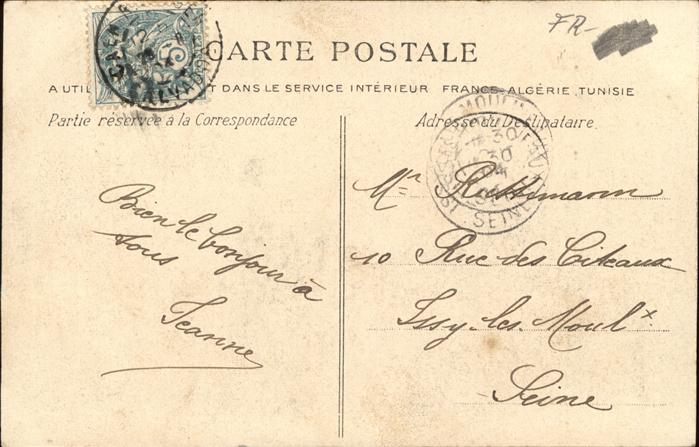 FR-
CARTE POSTALE
A UTIL DANS LE SERVICE INTÉRIEUR FRANCE-ALGÉRIE, TUNISIE
Partie réservée à la Correspondance
Adresse du Destinataire
CALVADOS
SEINE
Bien le bonjour à
tous
Jeanne
Mr
10 Rue des Citeaux
Issy-les-Moulx
Seine